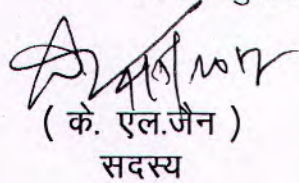 ( के. एल.जैन )
सदस्य